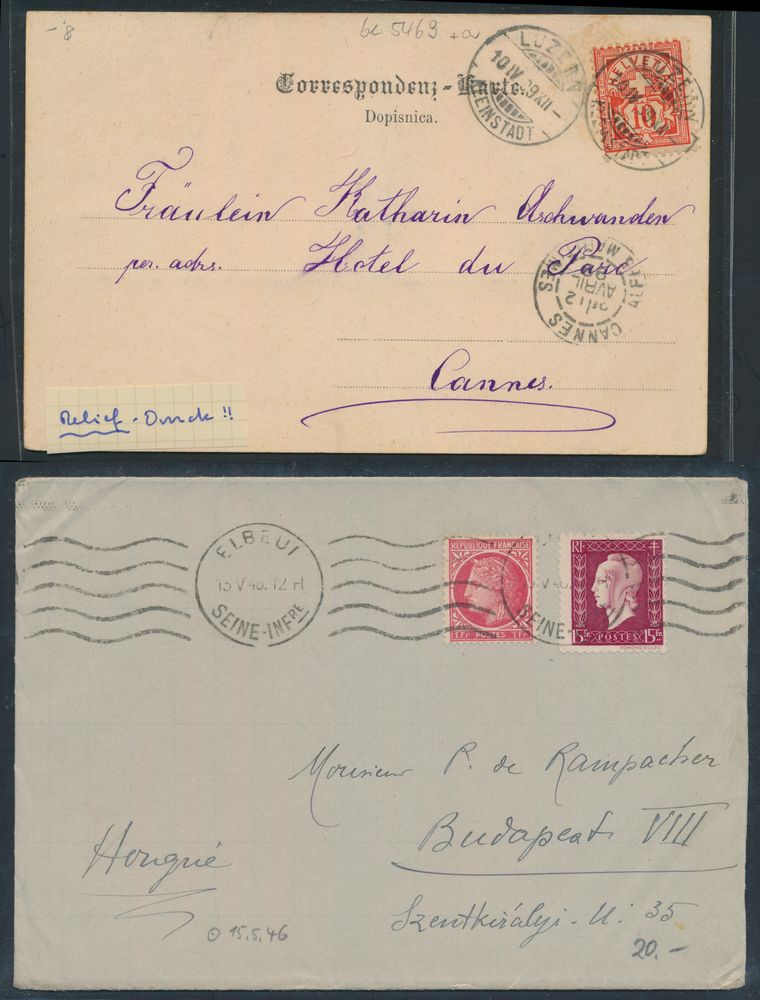 -.8
bc 5463 + a
Correspondenz-Karte.
Dopisnica.
LUZERN
10 IV. 99. XII-
KLEINSTADT
HELVETIA
10
Fräulein Katharin Aschwanden
per. adrs. Hotel du Parc
Cannes.
CANNES
AVRIL
ALPES MARITIMES
Relief-Druck!!
ELBEUF
15 V 46. 12 H
SEINE-INFRE
REPUBLIQUE FRANÇAISE
1Fr POSTES 1Fr
SEINE-
RF
15Frs POSTES 15Frs
EDMOND DULAC
Monsieur P. de Rampacher
Budapest VIII
Hongrie
Szentkirályi-U. 35
15.5.46
20.-